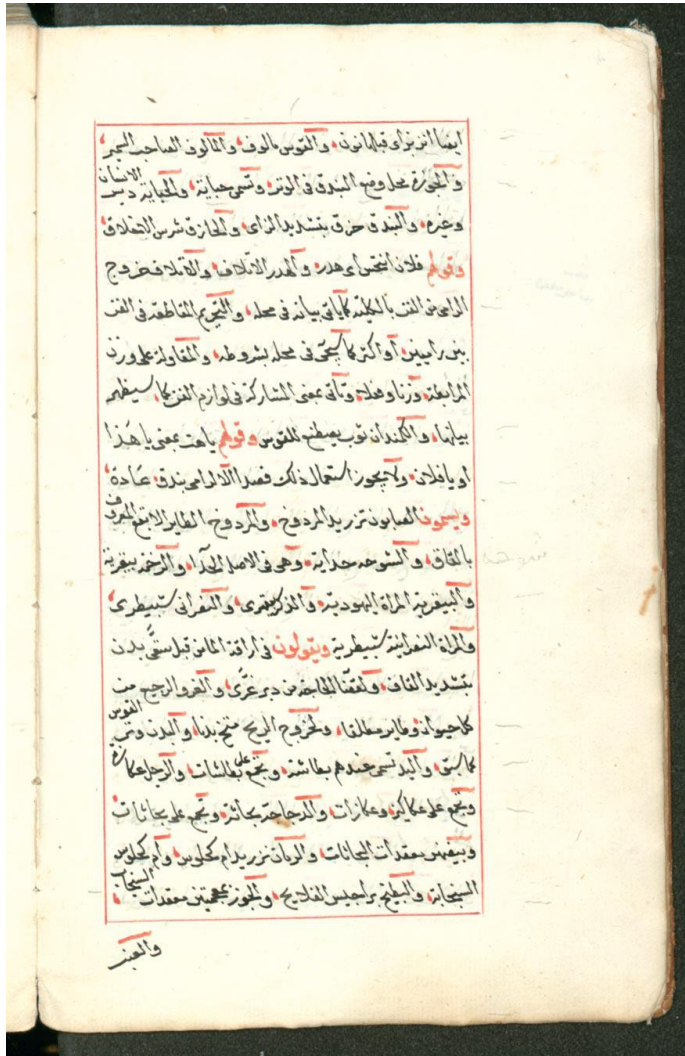 ايضا انزبراى قبلها نون والقوس مالوف والمألوف الصاحب السحر
والجوزة محل وضع البندق فى الوتر وتسمى حباية والحباية دبس الانسان
وغيره والبندق خرق بتشديد الزاى والخازق شرس الانغلاق
وقولهم فلان انخس اى هدر والهدر الاتلاف والاتلاف خروج
الرامى من الفن بالكلية كما ياتى بيانه فى محله والتجريم المقاطعة فى الفن
بين راميين او اكثر كما سيجى فى محله بشروطه والمقاولة على وزن
المرابطة وزنا وفعلا وتأتى بمعنى المشاركة فى لوازم الفن كما سيظهر
بيانها والكمندان ثوب يصطنع للقوس وقولهم ياهت بمعنى يا هذا
او يا فلان ولا يجوز استعمال ذلك قصدا الا لرامى بندق عادة
ويسمون الصابون تزريد المردوخ والمردوخ الطاير الابقع المعروف
بالقاق والشوحه حداية وهى فى الاصل الحدآ والرخمة بيغرية
والبيغرية المراة اليهودية والذكر بيغرى والنصرانى سبيطرى
والمراة النصرانية سبيطرية ويقولون فى اراقة الماء من قبل سقى بدن
بتشديد القاف ولقضا الحاجة من دبر غرى والغرو الرجيع من
كل حيوان وطاير مطلقا ولخروج الريح منخ بدنا والبدن وتر القوس
كما سبق واليد تسمى عندهم بغاشة وتجمع على بغاشات والرجل عكازة
وتجمع على عكاكيز وعكازات والدجاجة بجاثة وتجمع على بجاثات
وبيضهن معقدات البجاثات والرمان تزريد ام كحلوس وام كحلوس السنجاب
السنجابة والبطيخ براجيس الفلاليح والجوز بمعجمتين معقدات
والعنبر